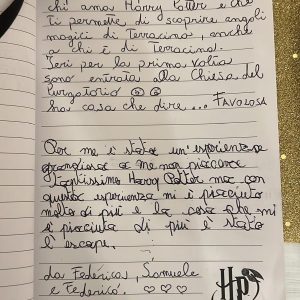 chi ama Harry Potter e che
ti permette di scoprire angoli
magici di Terracina, anche
a chi è di Terracina.
Ieri per la prima volta
sono entrata alla Chiesa del
Purgatorio
ha cosa che dire... FAVOLOSA
Per me è stata un'esperienza
a me non piaceva
tantissimo Harry Potter ma con
questa esperienza mi è piaciuto
molto di più e la cosa che mi
è piaciuta di più è stato
l'escape.
da Federica, Samuele
e Federico. ♡♡♡
HP